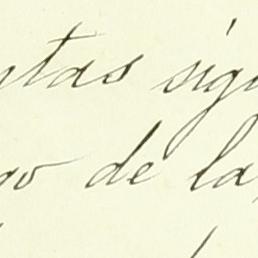 ntas sigu
go de la